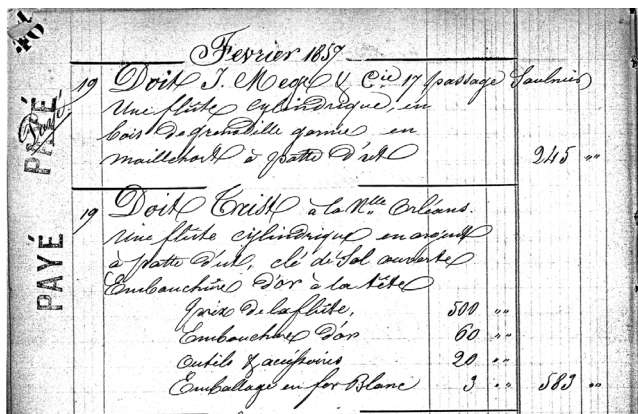 40
Fevrier 1857
PAYÉ
19 Doit J. Mega & Cie 17 passage Saulnier
Une flûte cylindrique, en
bois de grenadille garnie en
maillechort à patte d'ut 245 "
PAYÉ
19 Doit Treist à la Nlle Orléans.
Une flûte cylindrique en argent
à patte d'ut, clé de Sol ouverte
Embouchure d'or à la tête
Prix de la flûte, 500 "
Embouchure d'or 60 "
Outils & accessoires 20 "
Emballage en fer Blanc 3 " 583 "